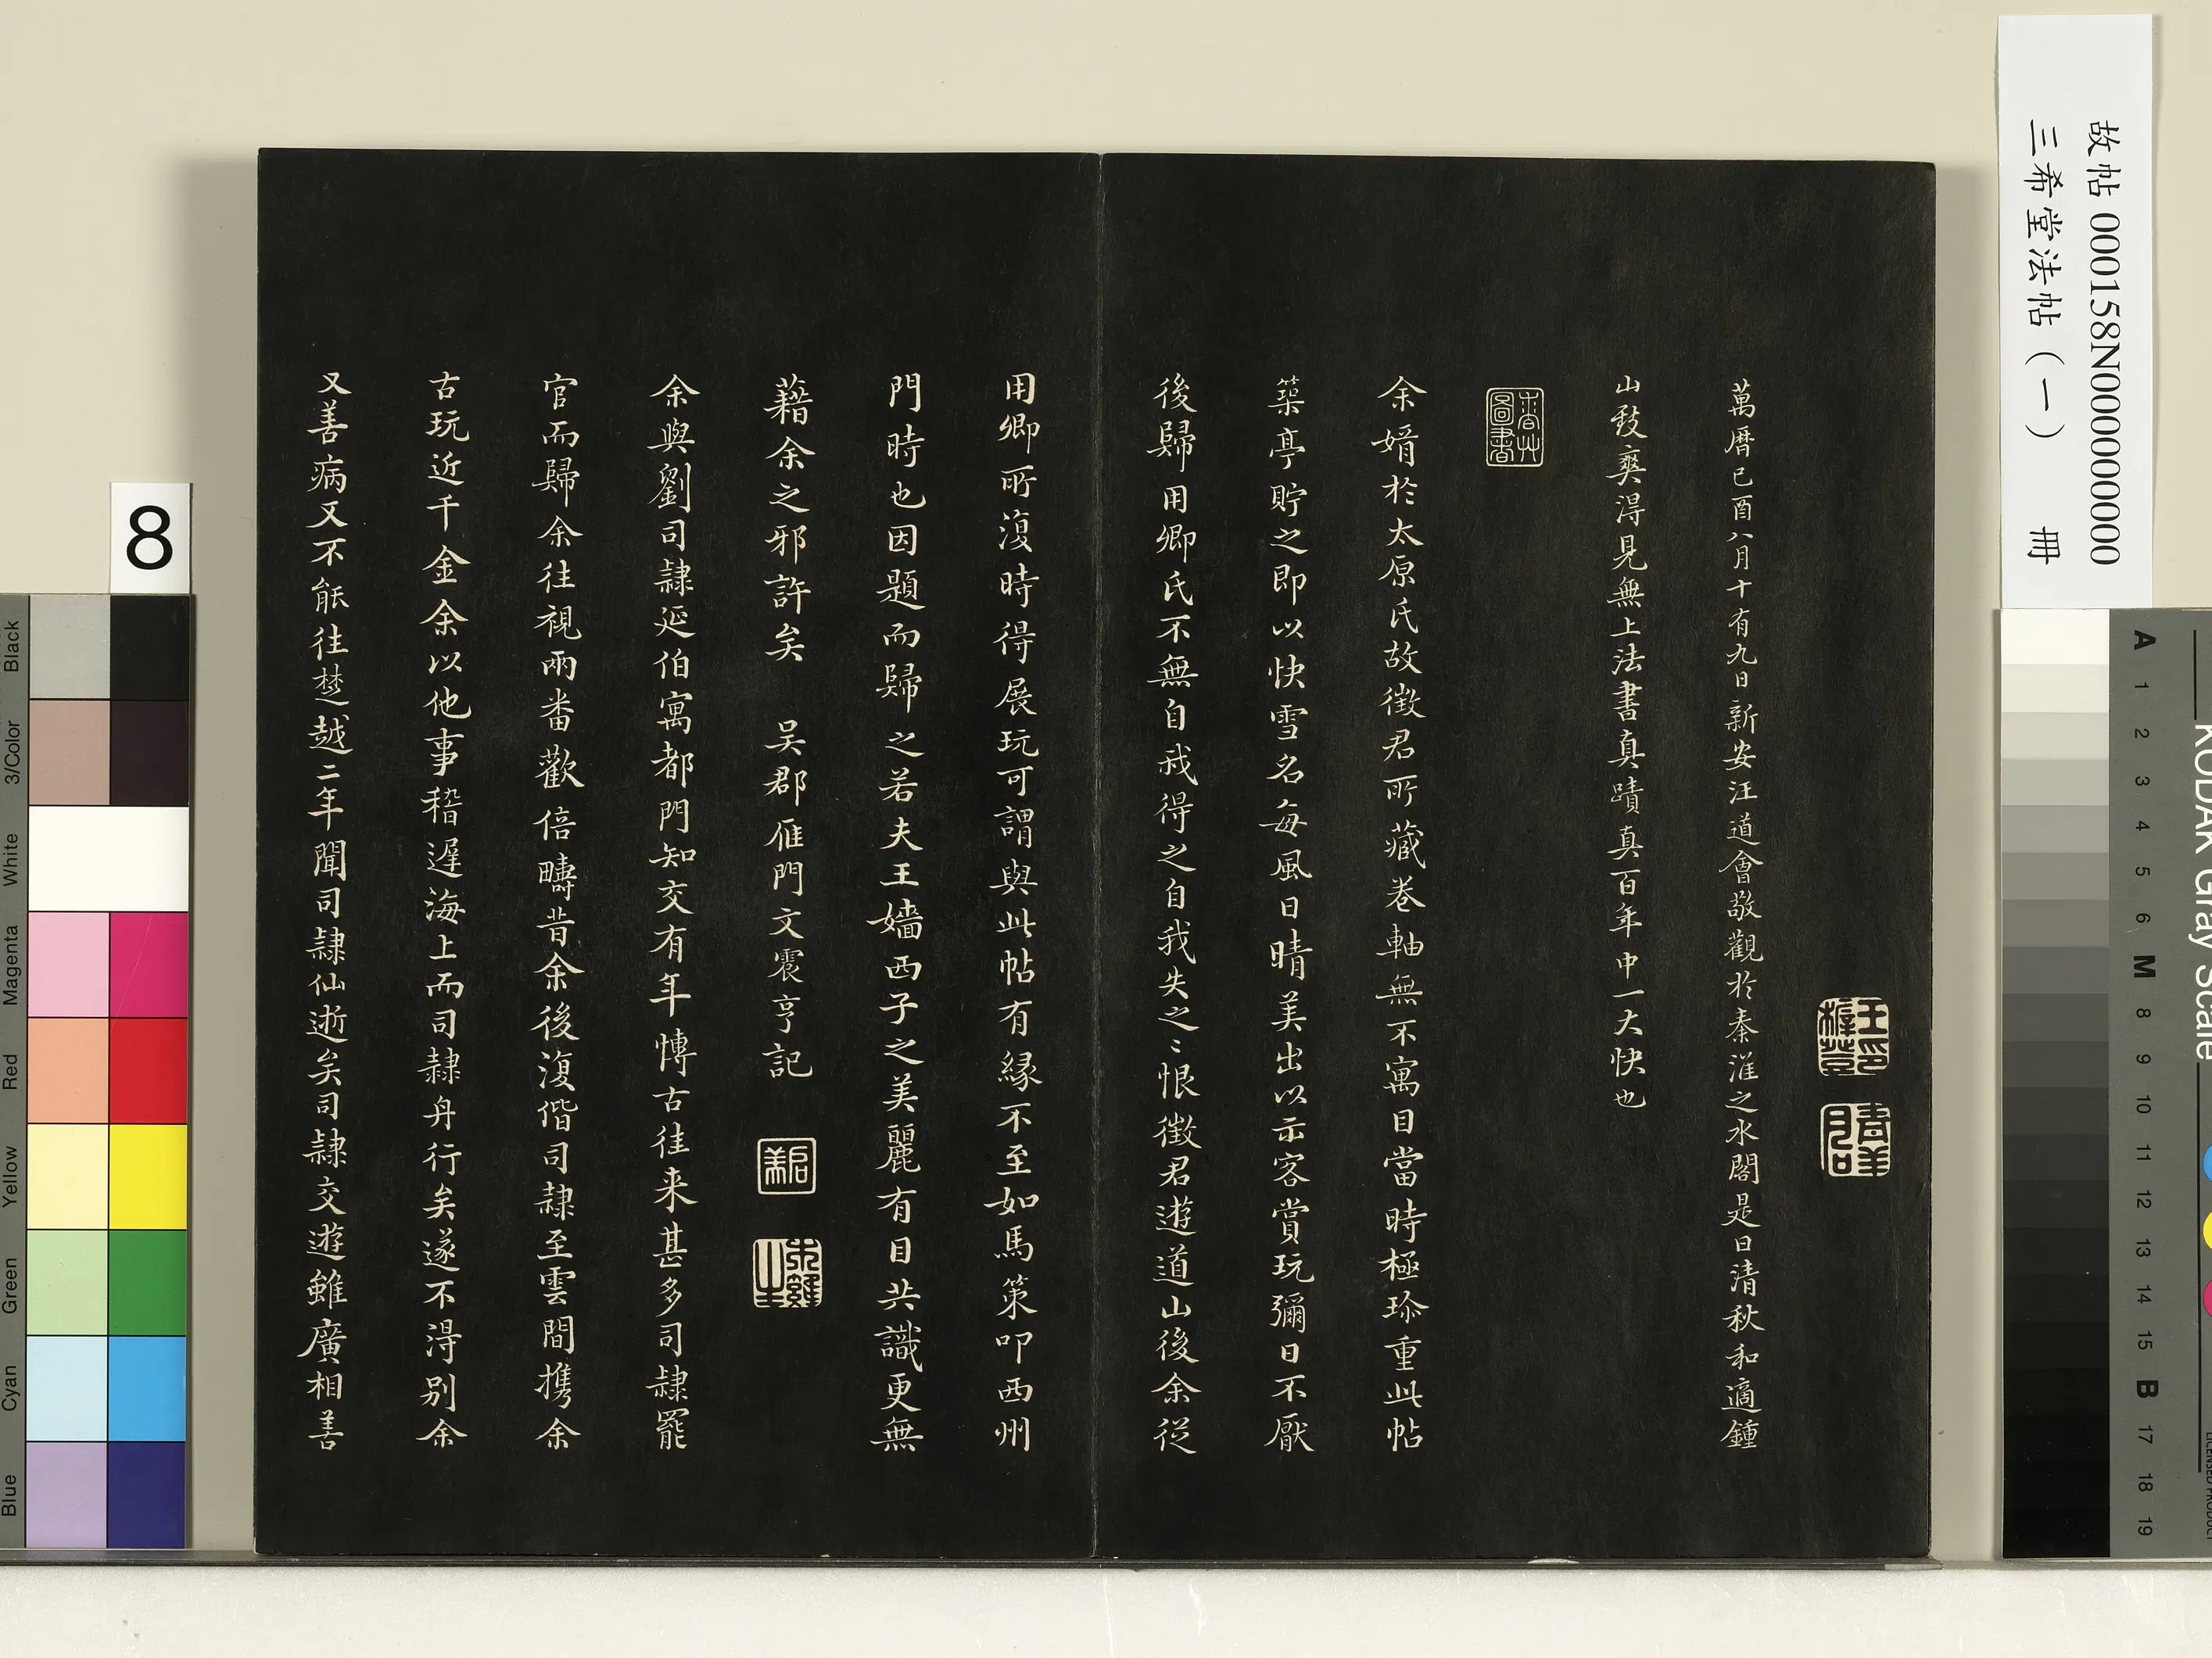 故帖 000158N000000000
三希堂法帖（一） 冊
萬曆己酉八月十有九日新安汪道會敬觀於秦淮之水閣是日清秋和適鍾
山致爽得見無上法書真蹟真百年中一大快也
余婿於太原氏故徵君所藏卷軸無不寓目當時極珍重此帖
築亭貯之即以快雪名每風日晴美出以示客賞玩彌日不厭
後歸用卿氏不無自我得之自我失之〻恨徵君遊道山後余從
用卿所復時得展玩可謂與此帖有緣不至如馬策叩西州
門時也因題而歸之若夫王嬙西子之美麗有目共識更無
藉余之邪許矣 吳郡雁門文震亨記
余與劉司隸延伯寓都門知交有年博古往来甚多司隸罷
官而歸余往視兩番歡倍疇昔余後復偕司隸至雲間攜余
古玩近千金余以他事稽遲海上而司隸舟行矣遂不淂別余
又善病又不能往楚越二年聞司隸仙逝矣司隸交遊雖廣相善
8
Black
3/Color
White
Magenta
Red
Yellow
Green
Cyan
Blue
KODAK Gray Scale
A 1 2 3 4 5 6 M 8 9 10 11 12 13 14 15 B 17 18 19